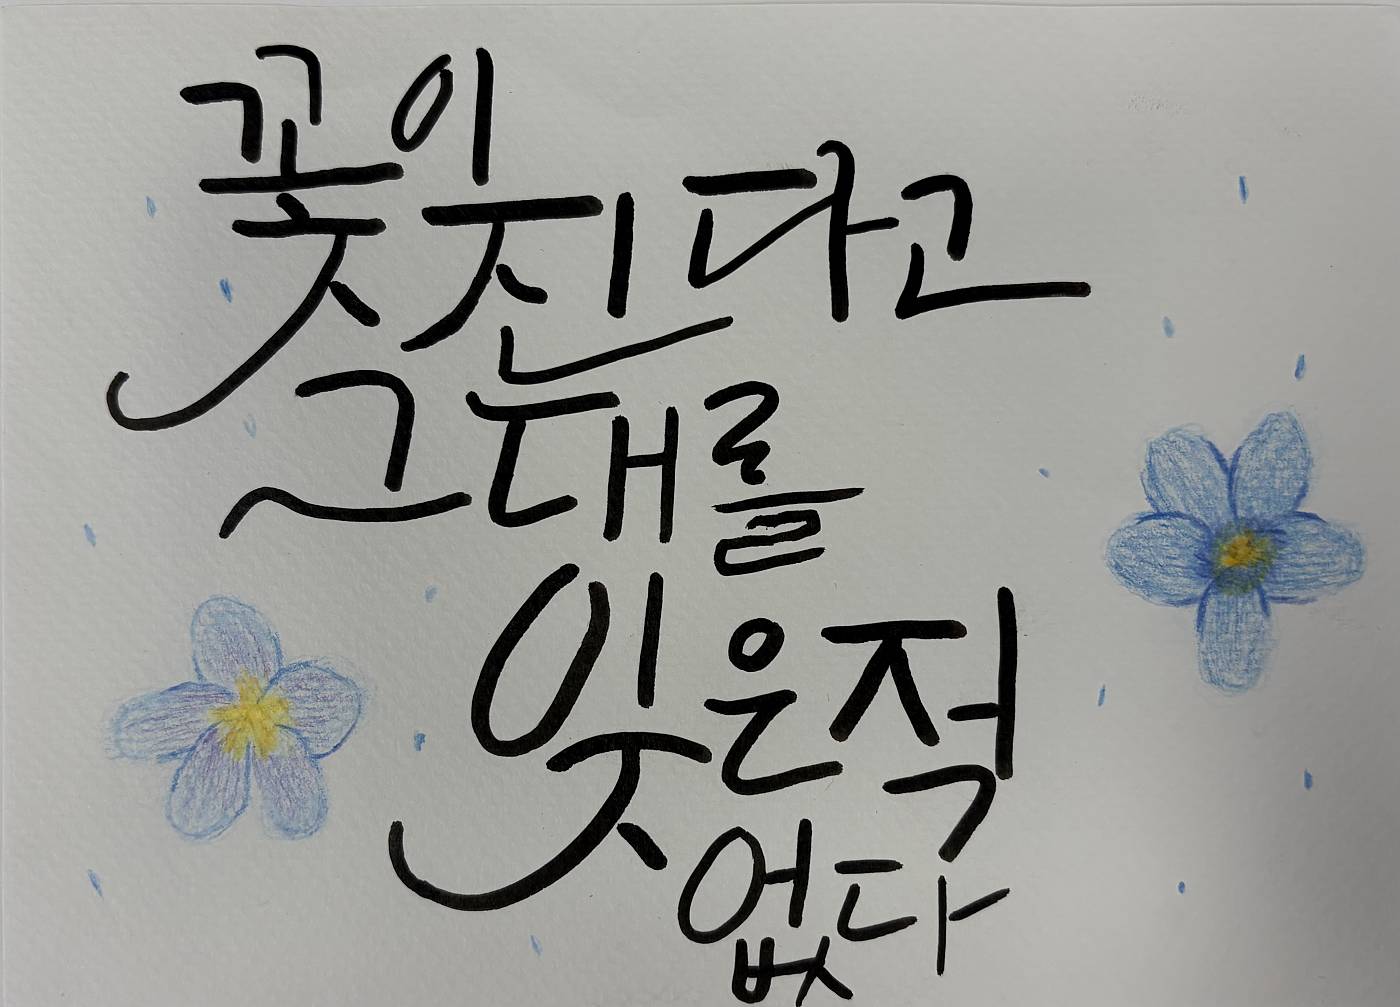 꽃이
진다고
그대를
잊은적
없다